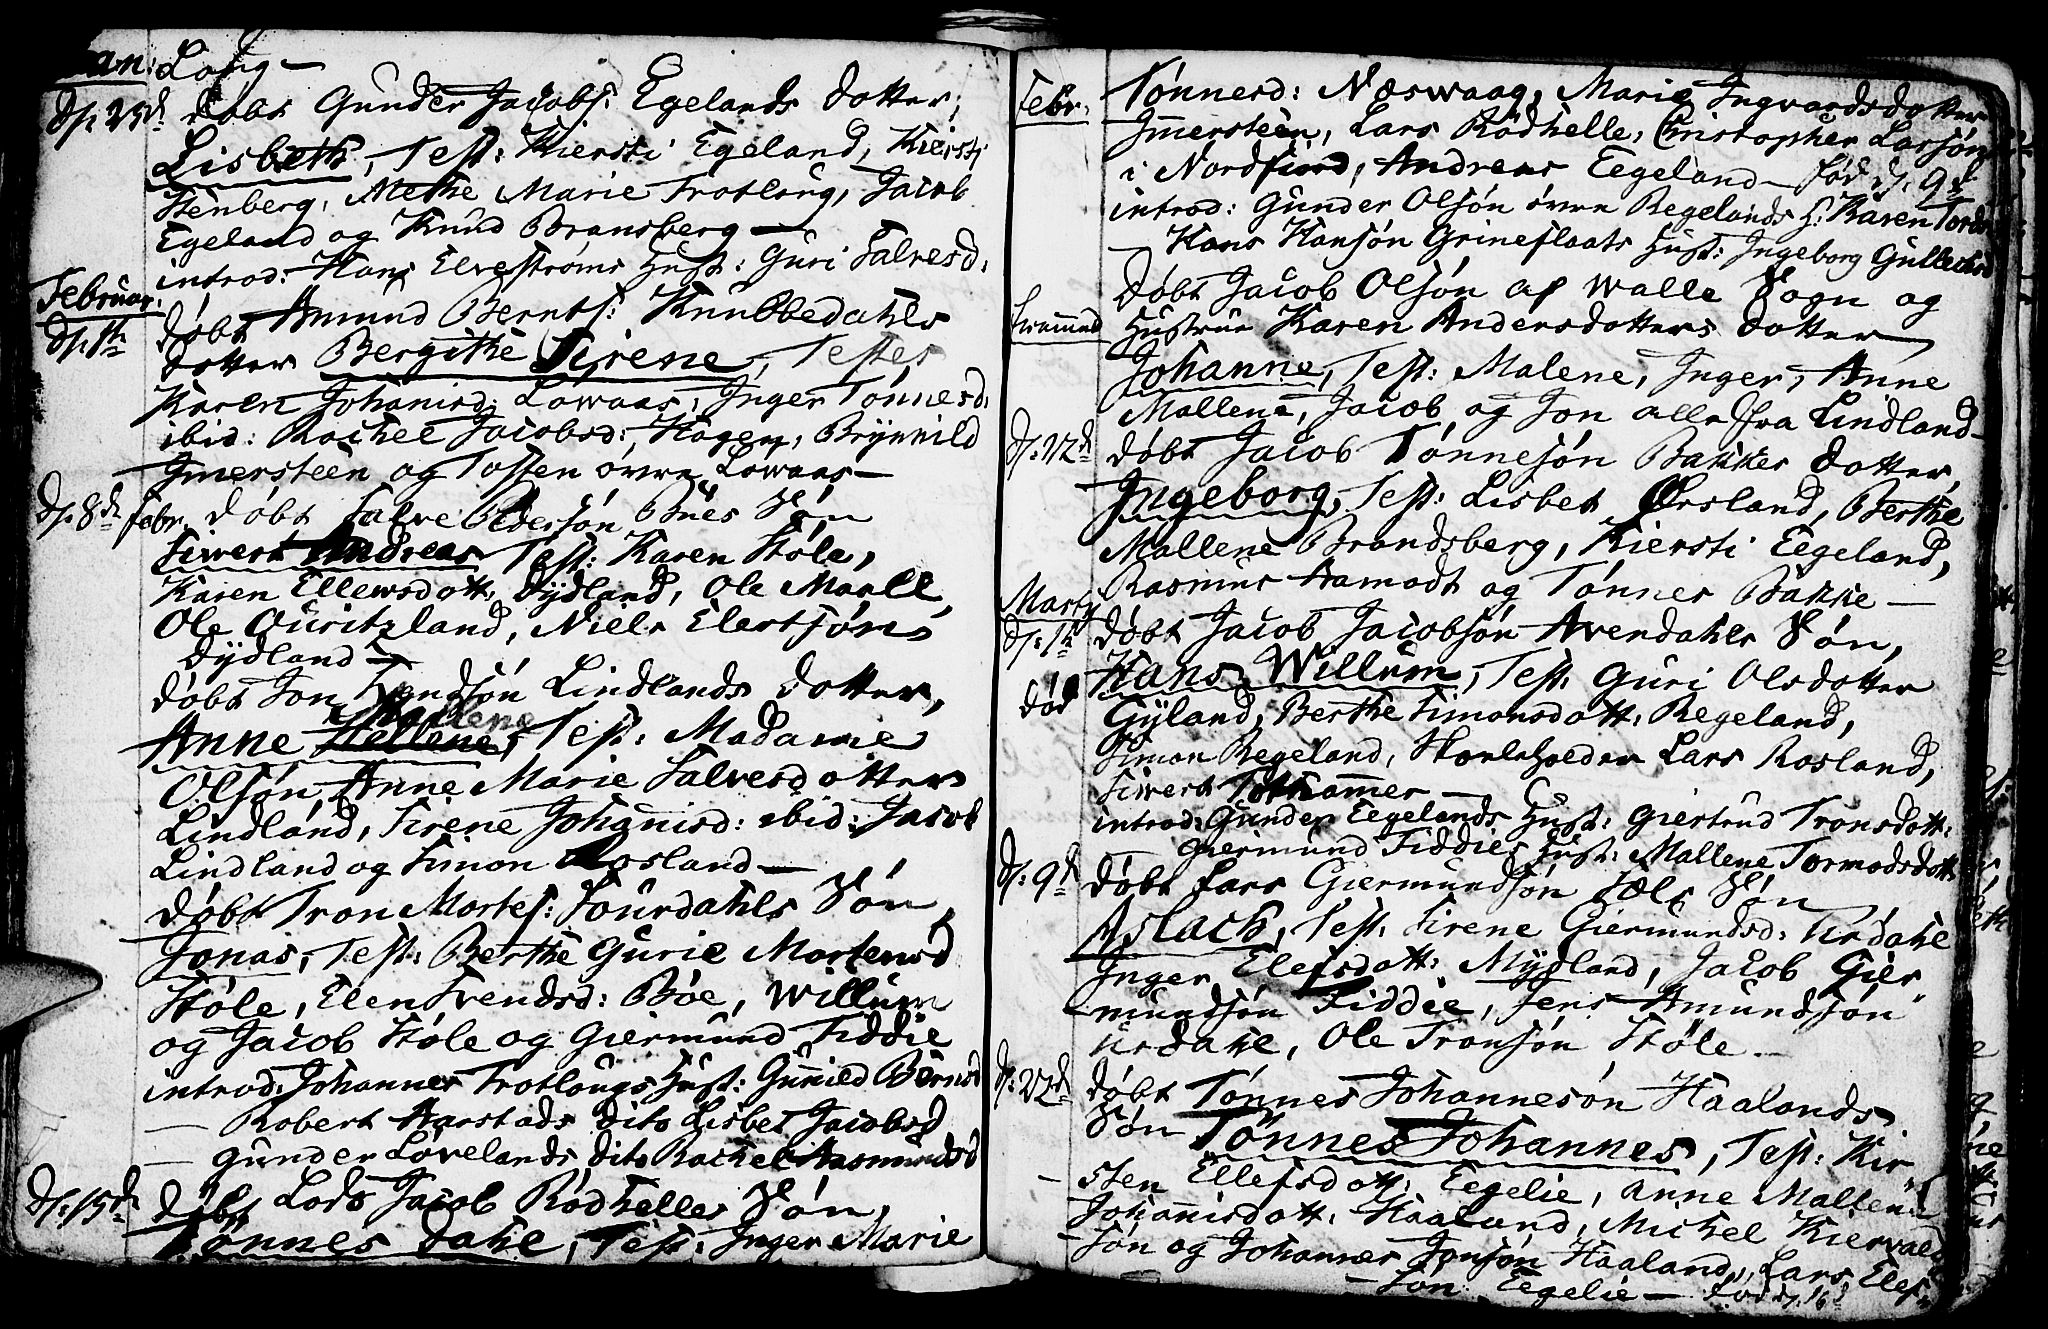 Jan: Loug—
d. 25d døbt Gunder Jacobs: Egelands dotter,
Lisbeth, Test: Kiersti Egeland, Kiersti
Stenberg, Methe Marie Trotloug, Jacob
Egeland og Knud Bransberg—
introd: Hans Elvestrøms Hust: Guri Salvesd:
Februar.
d. 1te døbt Amund Bernts: Knubbedahls
dotter Bergithe Sirene, Testes
Karen Johanisd: Lowaas, Inger Tønnesd:
ibid: Rachel Jacobsd: Hagen, Brynnild
Imersteen og Tosten øvre Lowaas—
d. 8d Febr. døbt Salve Pedersøn Bues Søn
Siwert Andreas Test: Karen Støle,
Karen Ellewsdott: Dydland, Ole Moall,
Ole Ouritzland, Niels Elertsøn
Dydland—
døbt Jon Trendsøn Lindlands dotter,
Mallene
Anne Hellene, Test: Madame
Olsøn Anne Marie Salvesdotter
Lindland, Sirene Johanisd: ibid: Jacob
Lindland og Simon Rosland—
døbt Tron Mortes: Sourdahls Søn,
Jonas, Test: Berthe Gurie Mortensd
Støle, Elen Trendsd: Bøe, Willum
og Jacob Støle og Giermund Fiddie
introd: Johannes Trotlougs Hust: Gunild Børnsd
— Robert Harstads dito Lisbet Jacobsd
— Gunder Løvelands dito Rachel Aasmundsd
d. 15d døbt Lods Jacob Rødhelles Søn,
Tønnes Dahl, Test: Inger Marie
Febr. Tønnesd: Næswaag, Marie Ingvardsdotter
Imersteen, Lars Rødhelle, Christopher Larsøn
i Nordfiord, Andreas Eegeland— fød d. 9d
introd: Gunder Olsøn øvre Regelands H: Karen Tords
— Hans Hansøn Grineflaats Hust: Ingeborg Gullechsd
døbt Jacob Olsøn af Walle Sogn og
Hustrue Karen Andersdotters dotter
Johanne, Test: Malene, Inger, Anne
Mallene, Jacob og Jon alle fra Lindland—
d. 22d døbt Jacob Tønnesøn Bakkes dotter,
Ingeborg, Test: Lisbet Ørsland, Berthe
Mallene Brandsberg, Kiersti Eegeland,
Rasmus Aamodt og Tønnes Bakke—
Marty
d. 1te døbt Jacob Jacobsøn Avendahls Søn,
død Hans Willum, Test: Guri Olsdotter
Gyland, Berthe Simonsdott: Regeland,
Simon Regeland, Skoeleholder Lars Rosland,
Siwert Tothammer—
introd: Gunder Eegelands Hust: Giertrud Tronsdott:
Giermund Fiddies Hust: Mallene Tormodsdott
d. 9d døbt Lars Giermundsøn Sæls Søn
Aslach, Test: Sirene Giermundsd: Urdahl
Inger Elefsdott: Mydland, Jacob Gier
mundsøn Fiddie, Jens Amundsøn
Urdahl, Ole Tronsøn Støle.—
d. 22d døbt Tønnes Johannesøn Haalands
Søn Tønnes Johannes, Test: Kir
sten Ellefsdott: Eegelie, Anne Mallene
Johannisdott: Haaland, Michel Kiervald
søn og Johannes Jonsøn Haaland, Lars Elef
— søn Eegelie— fød d. 16d